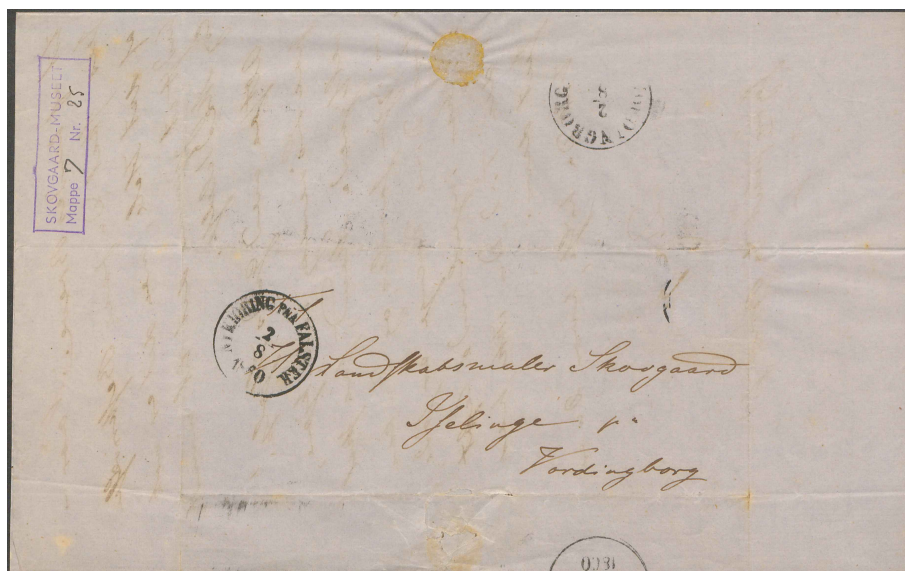 SKOVGAARD-MUSEET
Mappe 7 Nr. 25
VORDINGBORG
NYKIØBING PAA FALSTER
2
8
1860
Landskabsmaler Skovgaard
Iselinge pr
Vordingborg
1860